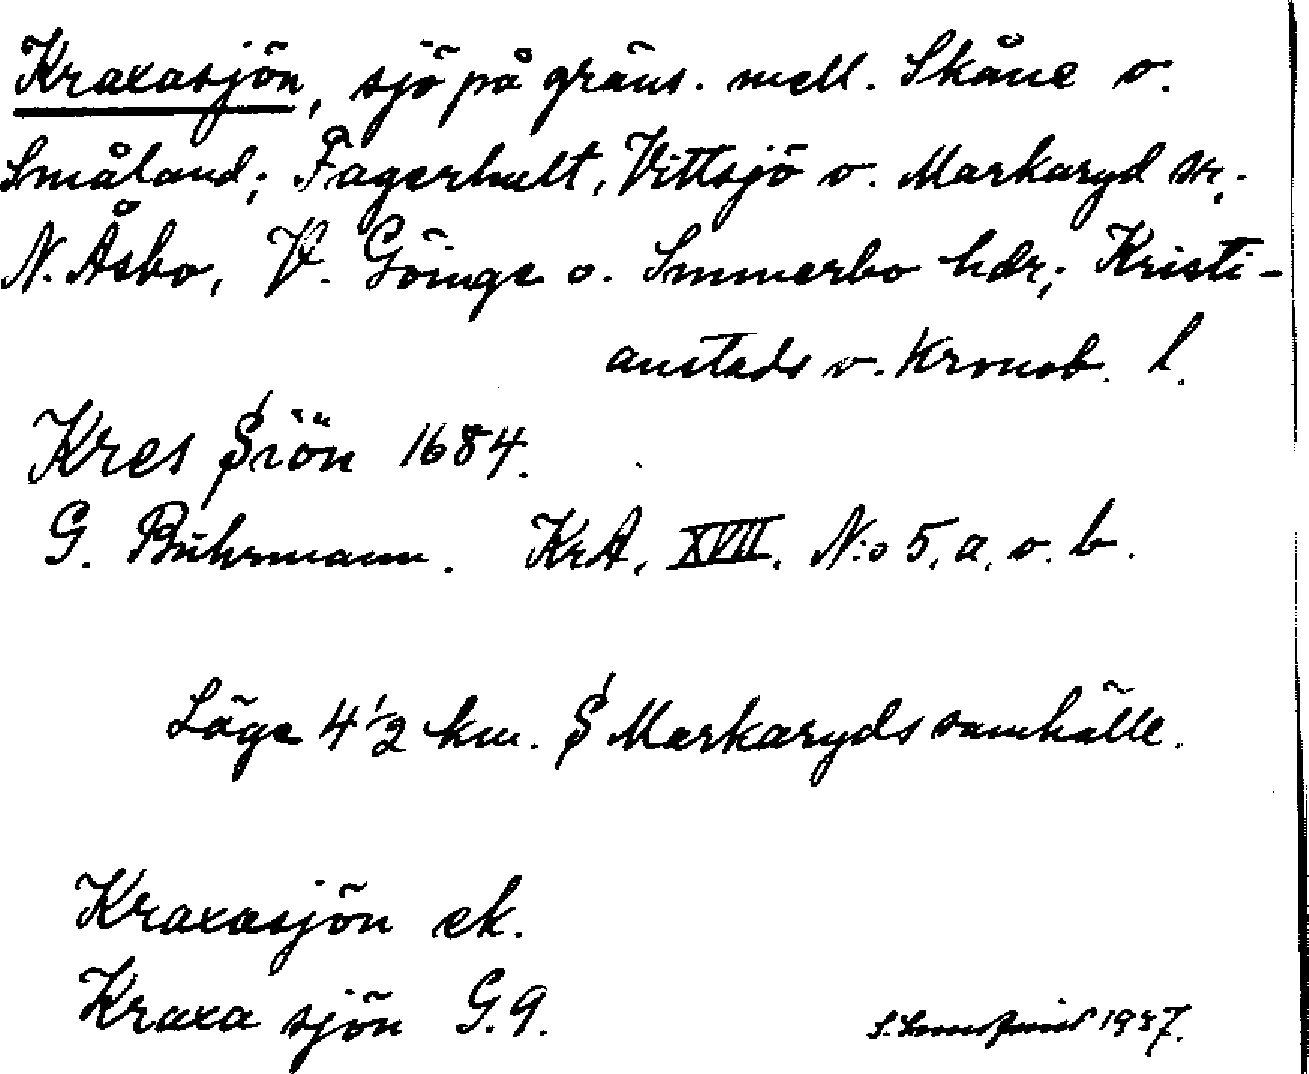 Kraxasjön, sjö på gräns. mell. Skåne o.
Småland; Fagerhult, Vittsjö o. Markaryd sn;
N. Åsbo, V. Göinge o. Sunnerbo hdr; Kristi-
anstads o. Kronob. l.
Kres Siön 1684.
G. Buhrmann. KrA, XVII. N:o 5, a. o. b.
Läge 4 1/2 km. S Markaryds samhälle.
Kraxasjön ek.
Kraxa sjön G.9.